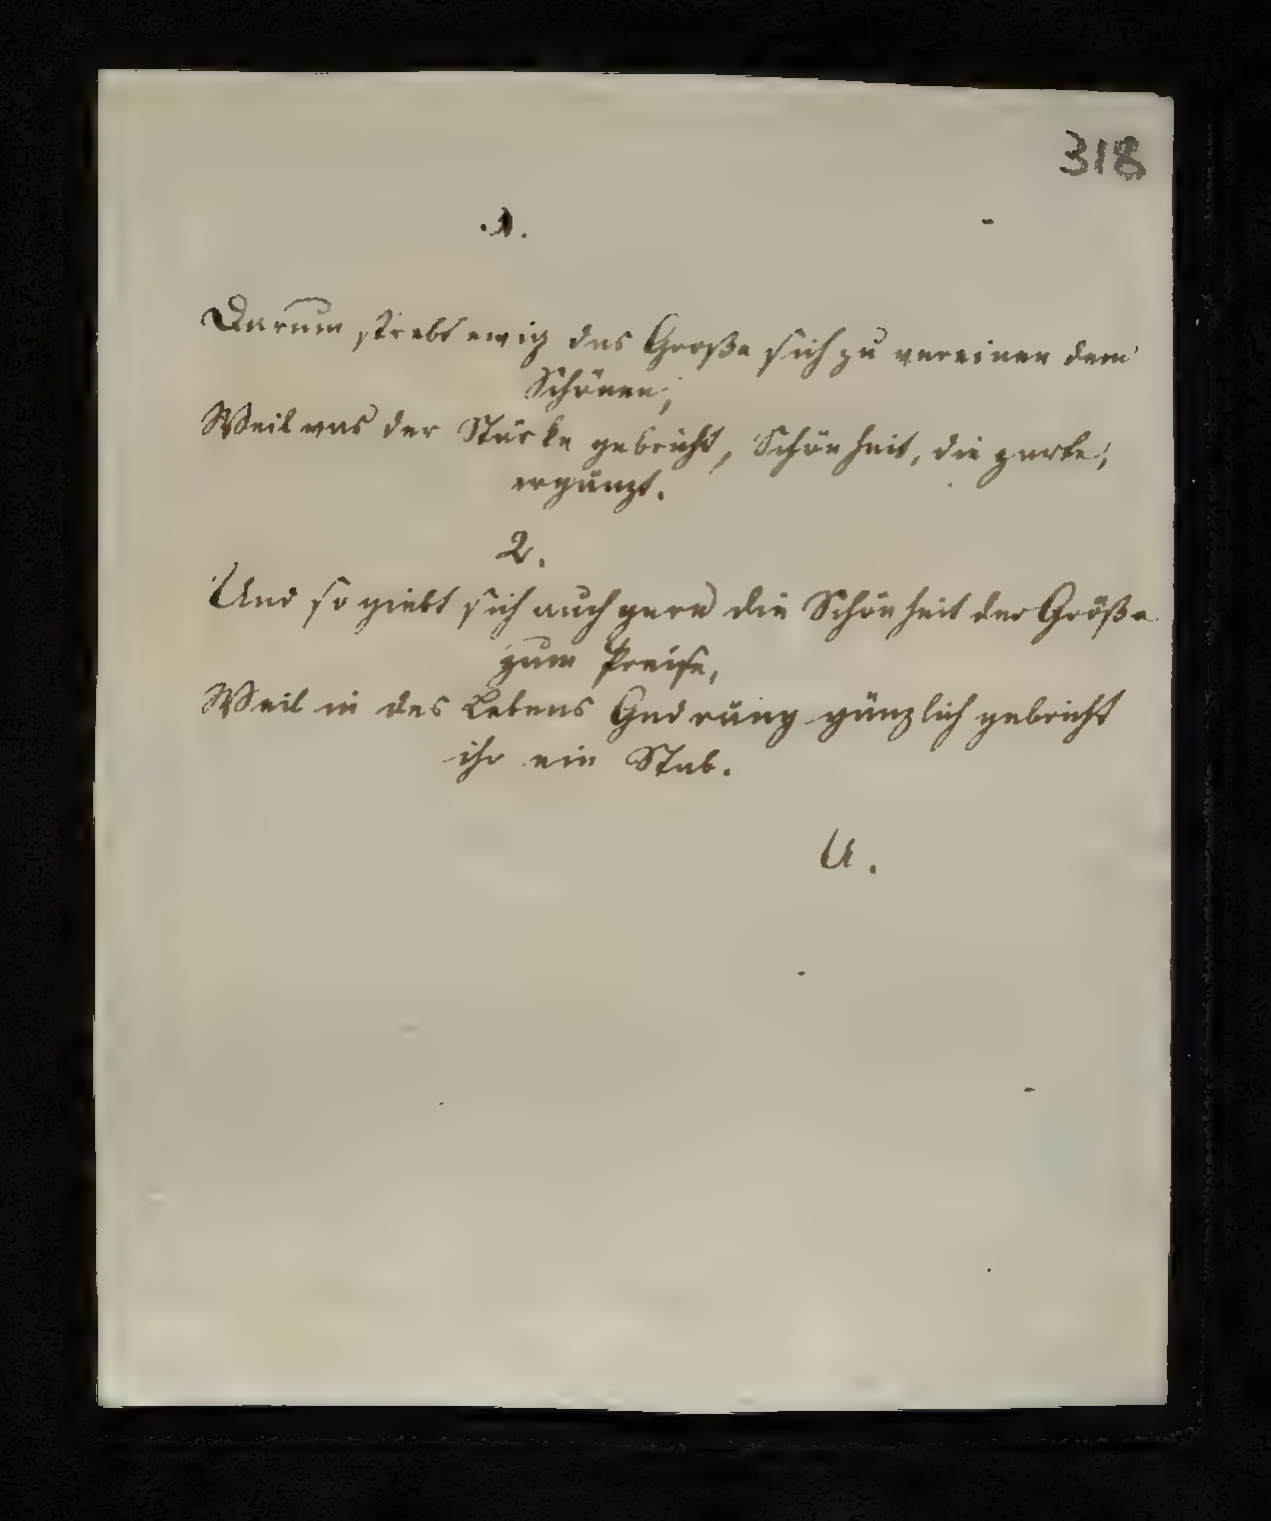 318
.1.
Darum strebt ewig das Große sich zu vereinen dem
Schönen,
Weil was der Stärke gebricht, Schönheit, die zarte,
ergänzt.
2.
Und so giebt sich auch gern die Schönheit der Größe
zum Preise,
Weil in des Lebens Gedräng gänzlich gebricht
ihr ein Stab.
U.